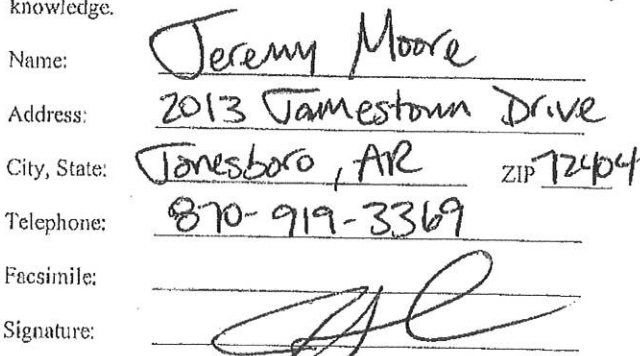 knowledge.
Name: Jeremy Moore
Address: 2013 Jamestown Drive
City, State: Jonesboro, AR ZIP 72404
Telephone: 870-919-3369
Facsimile:
Signature: